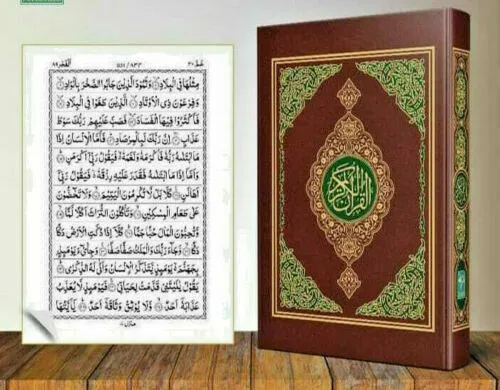 عَمَّ ٣٠
اَلْفَجْر ٨٩
مِثْلُهَا فِي الْبِلَادِ ۝ وَثَمُوْدَ الَّذِيْنَ جَابُوا الصَّخْرَ بِالْوَادِ ۝
وَفِرْعَوْنَ ذِي الْاَوْتَادِ ۝ الَّذِيْنَ طَغَوْا فِي الْبِلَادِ ۝
فَاَكْثَرُوْا فِيْهَا الْفَسَادَ ۝ فَصَبَّ عَلَيْهِمْ رَبُّكَ سَوْطَ
عَذَابٍ ۝ اِنَّ رَبَّكَ لَبِالْمِرْصَادِ ۝ فَاَمَّا الْاِنْسَانُ اِذَا
مَا ابْتَلٰىهُ رَبُّهٗ فَاَكْرَمَهٗ وَنَعَّمَهٗ فَيَقُوْلُ رَبِّيْٓ اَكْرَمَنِ ۝
وَاَمَّآ اِذَا مَا ابْتَلٰىهُ فَقَدَرَ عَلَيْهِ رِزْقَهٗ فَيَقُوْلُ رَبِّيْٓ
اَهَانَنِ ۝ كَلَّا بَلْ لَّا تُكْرِمُوْنَ الْيَتِيْمَ ۝ وَلَا تَحٰٓضُّوْنَ
عَلٰى طَعَامِ الْمِسْكِيْنِ ۝ وَتَاْكُلُوْنَ التُّرَاثَ اَكْلًا لَّمًّا ۝
وَّتُحِبُّوْنَ الْمَالَ حُبًّا جَمًّا ۝ كَلَّآ اِذَا دُكَّتِ الْاَرْضُ دَكًّا
دَكًّا ۝ وَّجَآءَ رَبُّكَ وَالْمَلَكُ صَفًّا صَفًّا ۝ وَجِايْٓءَ يَوْمَئِذٍۭ
بِجَهَنَّمَ يَوْمَئِذٍ يَّتَذَكَّرُ الْاِنْسَانُ وَاَنّٰى لَهُ الذِّكْرٰى ۝
يَقُوْلُ يٰلَيْتَنِيْ قَدَّمْتُ لِحَيَاتِيْ ۝ فَيَوْمَئِذٍ لَّا يُعَذِّبُ
عَذَابَهٗٓ اَحَدٌ ۝ وَّلَا يُوْثِقُ وَثَاقَهٗٓ اَحَدٌ ۝ يٰٓاَيَّتُهَا
القرآن الكريم